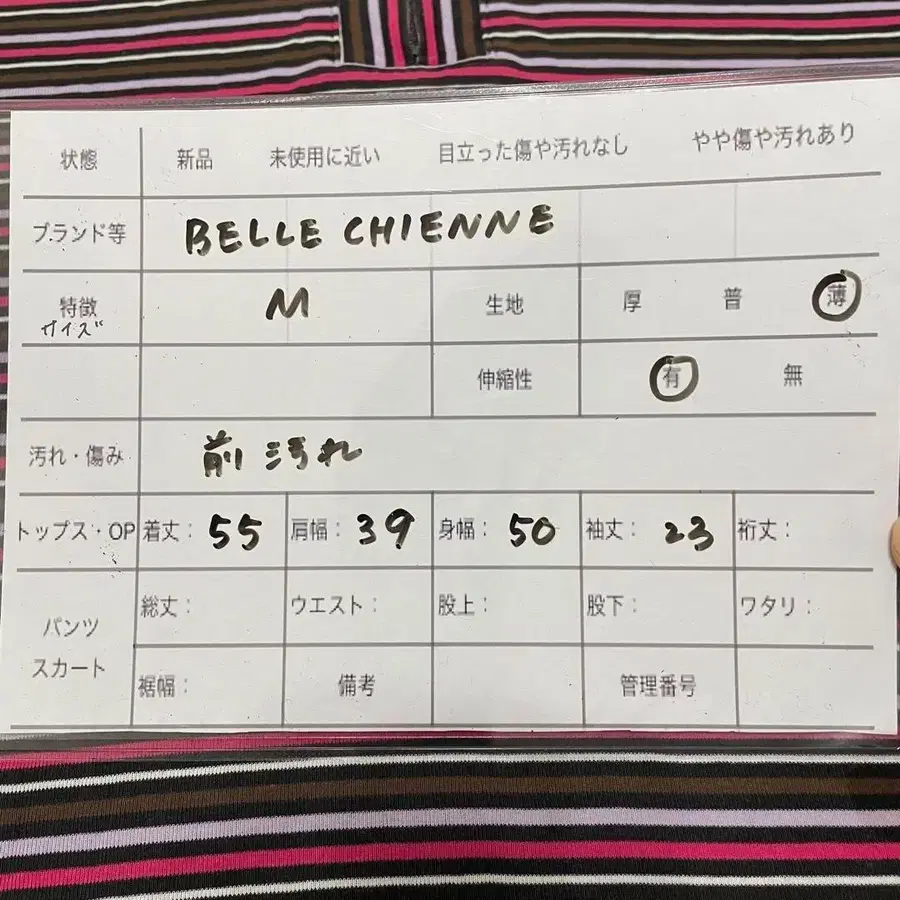 状態 新品 未使用に近い 目立った傷や汚れなし やや傷や汚れあり
ブランド等 BELLE CHIENNE
特徴 M 生地 厚 普 薄
サイズ
伸縮性 有 無
汚れ・傷み 前 汚れ
トップス・OP 着丈: 55 肩幅: 39 身幅: 50 袖丈: 23 裄丈:
パンツ 総丈: ウエスト: 股上: 股下: ワタリ:
スカート 裾幅: 備考 管理番号